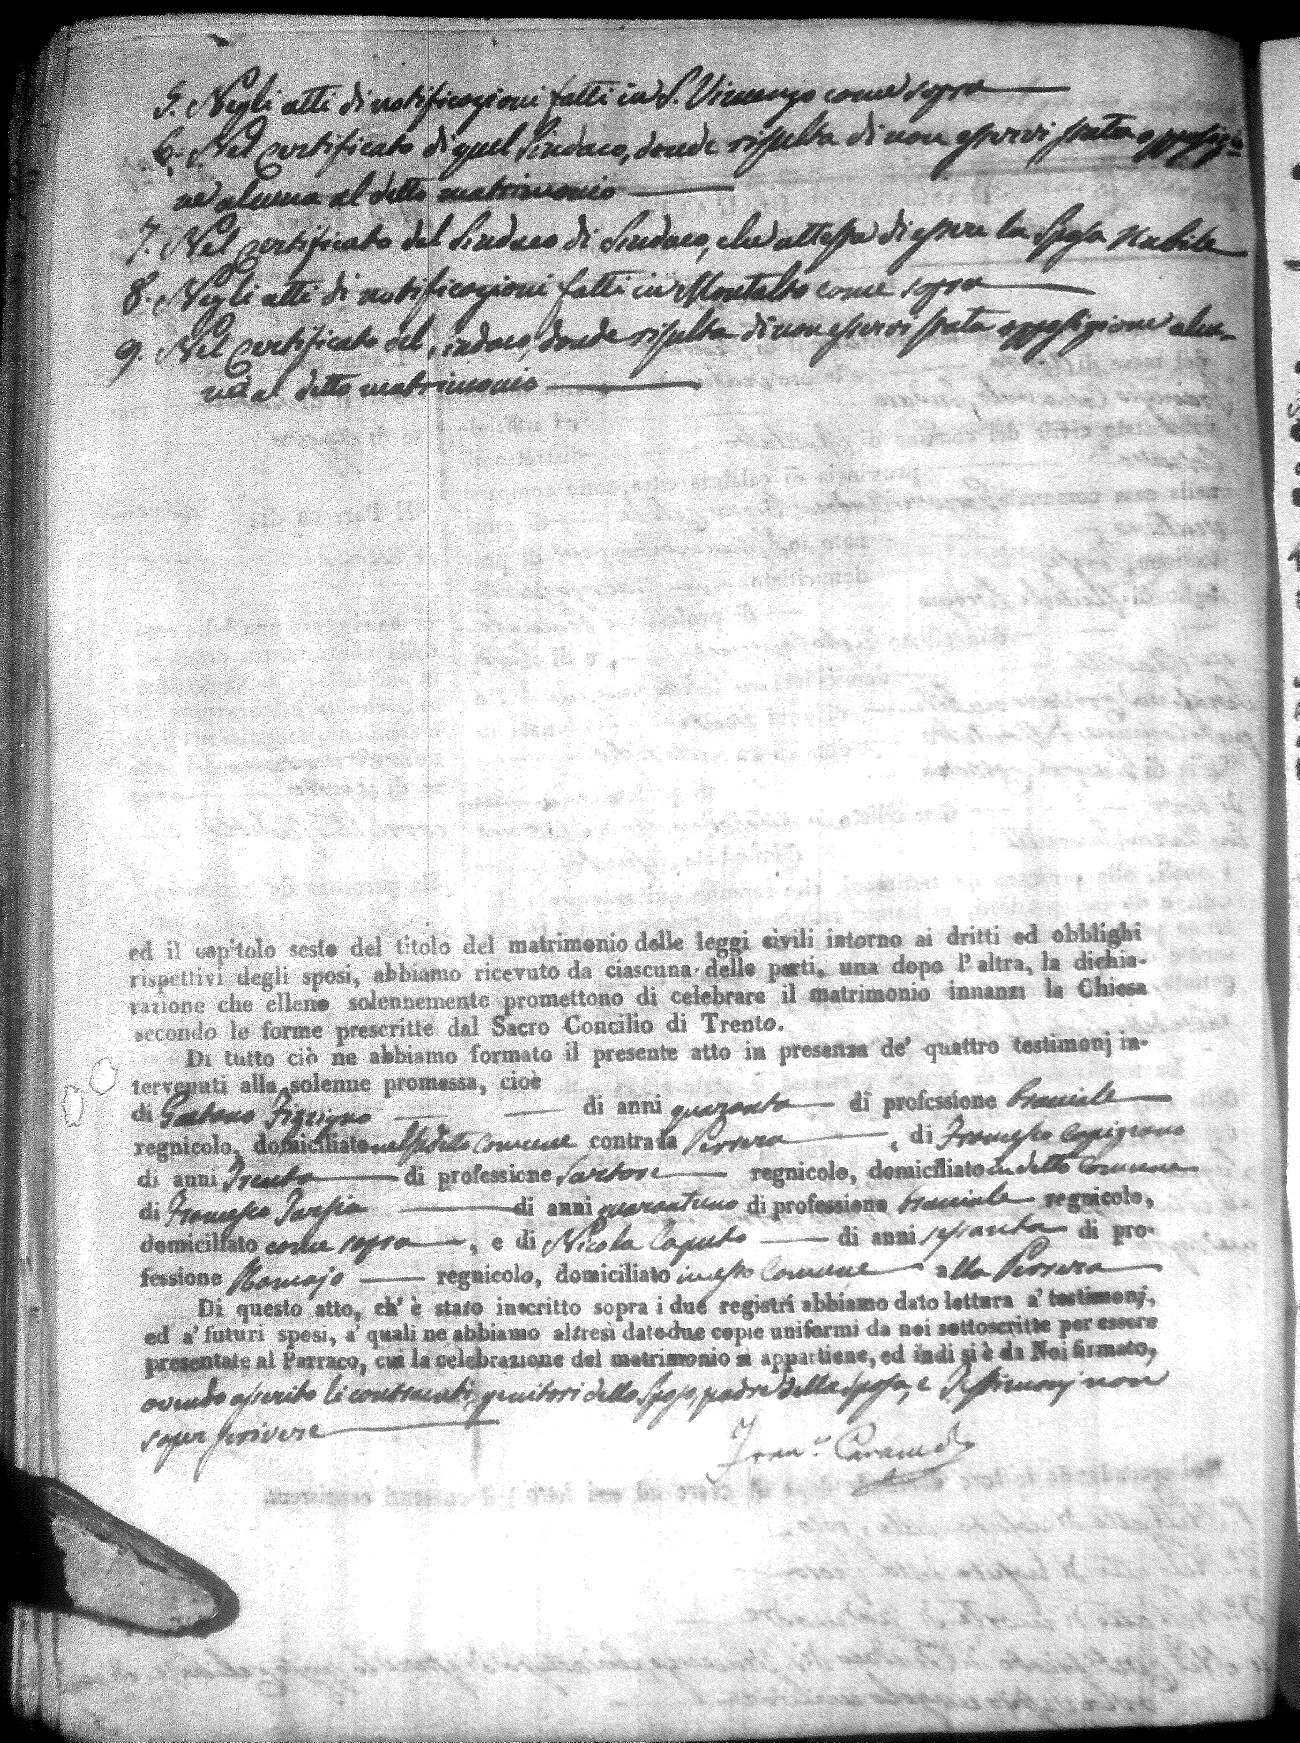 5. Negli atti di notificazioni fatti in S. Vincenzo come sopra
6. Nel certificato di quel Sindaco, donde risulta di non esservi stata opposizio
ne alcuna al detto matrimonio
7. Nel certificato del Sindaco di Sindaco, che attesta di essere la Sposa Nubile
8. Negli atti di notificazioni fatti in Montalto come sopra
9. Nel certificato del Sindaco, donde risulta di non esservi stata opposizione alcu-
na al detto matrimonio
ed il capitolo sesto del titolo del matrimonio delle leggi civili intorno ai dritti ed obblighi
rispettivi degli sposi, abbiamo ricevuto da ciascuna delle parti, una dopo l'altra, la dichia-
razione che elleno solennemente promettono di celebrare il matrimonio innanzi la Chiesa
secondo le forme prescritte dal Sacro Concilio di Trento.
Di tutto ciò ne abbiamo formato il presente atto in presenza de' quattro testimonj in-
tervenuti alla solenne promessa, cioè
di Gaetano di anni quaranta di professione braciale
regnicolo, domiciliato Comune contrada Perrera, di Francesco
di anni Trenta di professione Sartore regnicolo, domiciliato in detto Comune
di Francesco Tarsia di anni quarantuno di professione braciale regnicolo,
domiciliato come sopra, e di Nicola Caputo di anni sessanta di pro-
fessione regnicolo, domiciliato in esso Comune alla Perrera
Di questo atto, ch'è stato inscritto sopra i due registri abbiamo dato lettura a' testimonj,
ed a' futuri sposi, a' quali ne abbiamo altresì date due copie uniformi da noi sottoscritte per essere
presentate al Parraco, cui la celebrazione del matrimonio si appartiene, ed indi si è da Noi firmato,
avendo asserito li contraenti, genitori dello Sposo, padre della sposa, e Testimonj non
saper scrivere